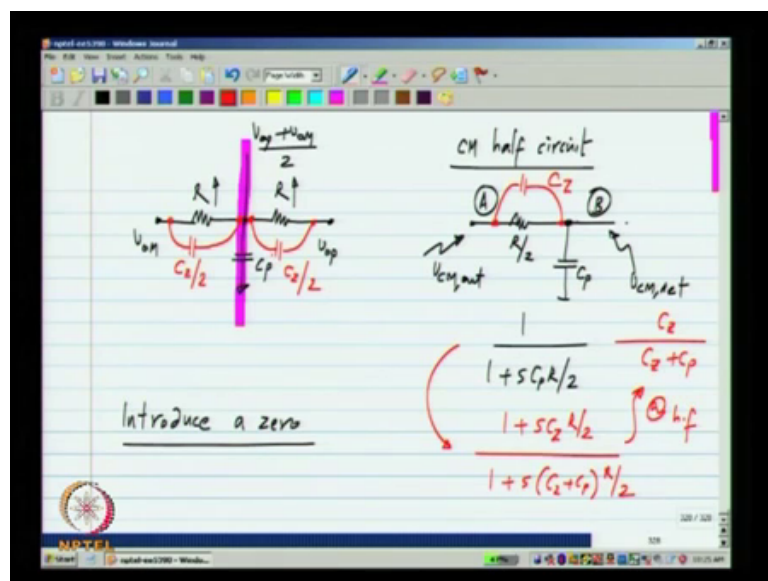 nptel-ee5390 - Windows Journal
File Edit View Insert Actions Tools Help
Page Width
B I
Vop + Vom
2
R R
Vom Vop
Cz/2 Cp Cz/2
CM half circuit
Cz
A B
R/2
Cp
VCM,out VCM,det
1
1 + sCpR/2
Cz
Cz + Cp
1 + sCz R/2
1 + s(Cz+Cp) R/2
@ h.f
Introduce a zero
328 / 328
328
NPTEL
Start
nptel-ee5390 - Windo...
10:25 AM